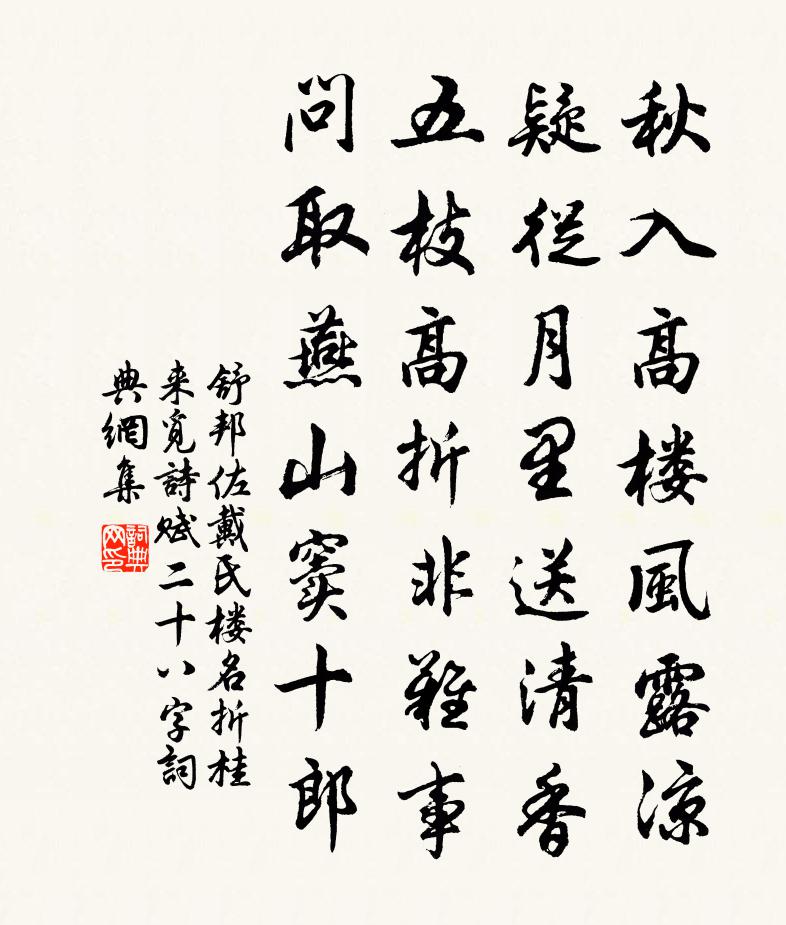 秋入高楼風露涼
疑從月里送清香
五枝高折非難事
問取燕山竇十郎
舒邦佐戴氏楼名折桂
来覓詩賦二十八字詞
典網集
詞典網印